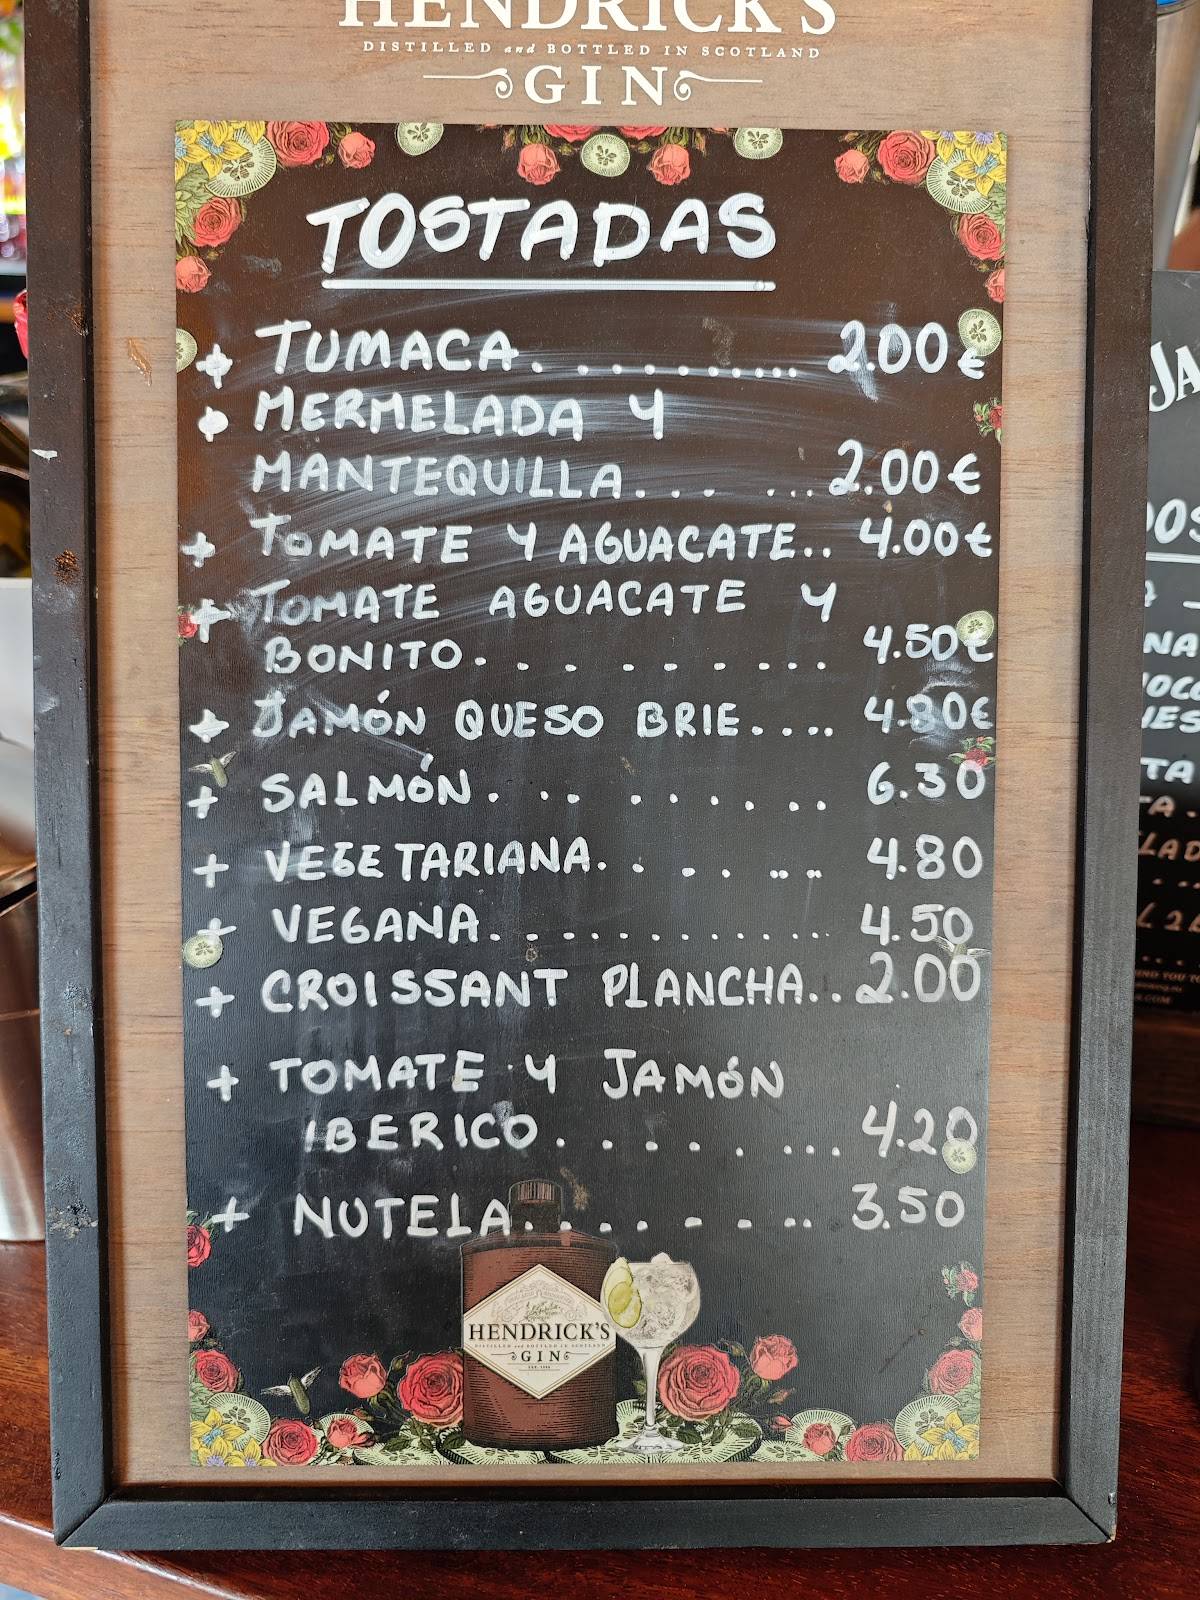 HENDRICK'S
DISTILLED and BOTTLED IN SCOTLAND
GIN
TOSTADAS
+ TUMACA.......... 2.00€
+ MERMELADA Y
MANTEQUILLA... ...2.00€
+ TOMATE Y AGUACATE.. 4.00€
+ TOMATE AGUACATE Y
BONITO......... 4.50€
+ JAMÓN QUESO BRIE.... 4.80€
+ SALMÓN......... 6.30
+ VEGETARIANA...... 4.80
+ VEGANA............ 4.50
+ CROISSANT PLANCHA.. 2.00
+ TOMATE Y JAMÓN
IBERICO........ 4.20
+ NUTELA........ 3.50
HENDRICK'S
DISTILLED and BOTTLED IN SCOTLAND
GIN